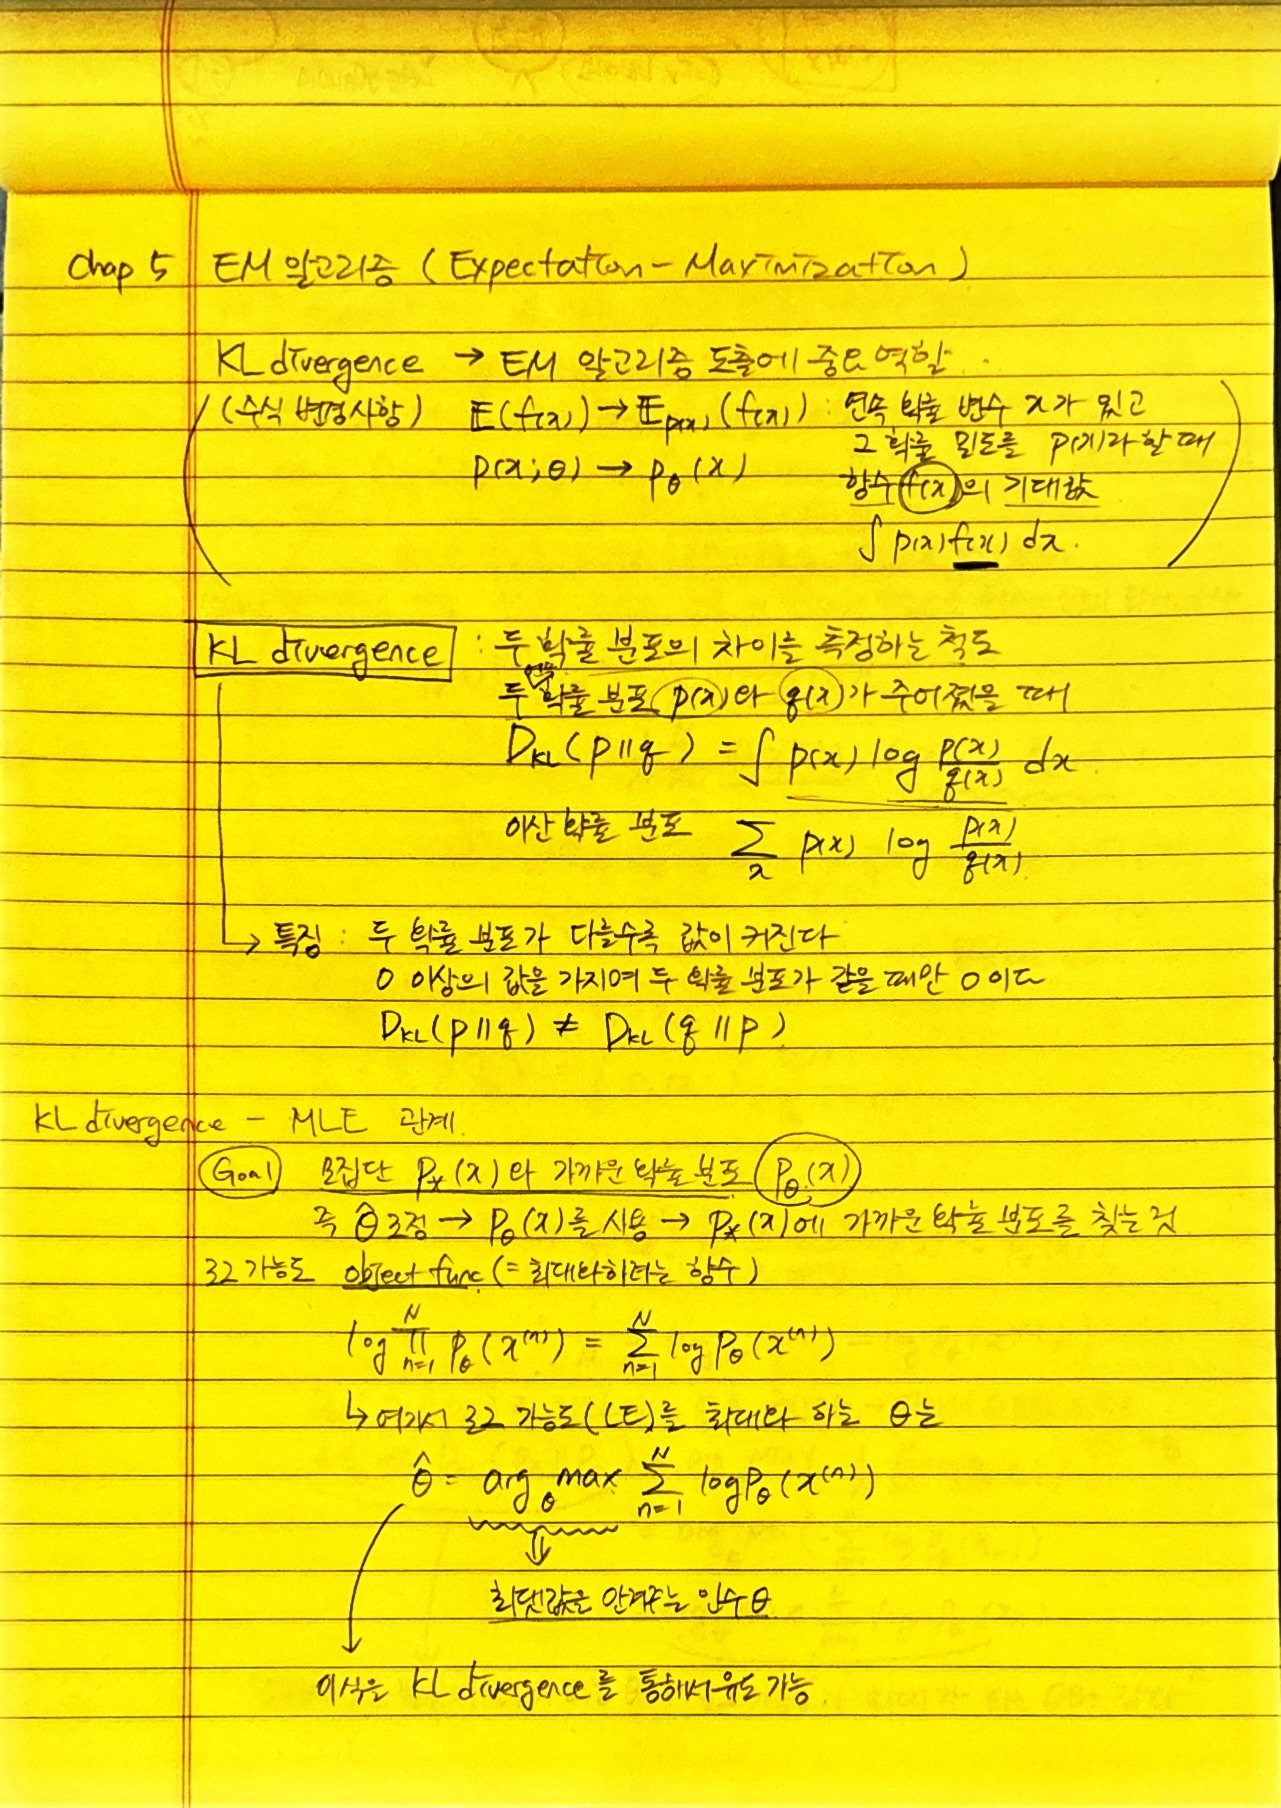 Chap 5 EM 알고리즘 (Expectation - Maximization)
KL divergence → EM 알고리즘 도출에 중요 역할.
(수식 변경사항) E(f(x)) → E_p(x)(f(x)) : 연속 확률 변수 x가 있고
그 확률 밀도를 p(x)라 할 때
p(x;θ) → p_θ(x) 함수 f(x)의 기대값
∫ p(x) f(x) dx.
KL divergence : 두 확률 분포의 차이를 측정하는 척도
두 연속 확률 분포 p(x)와 q(x)가 주어졌을 때
D_KL(p||q) = ∫ p(x) log p(x)/q(x) dx
이산 확률 분포 ∑_x p(x) log p(x)/q(x)
→ 특징 : 두 확률 분포가 다를수록 값이 커진다
0 이상의 값을 가지며 두 확률 분포가 같을 때만 0이다
D_KL(p||q) ≠ D_KL(q||p)
KL divergence - MLE 관계
Goal 모집단 p_*(x)와 가까운 확률 분포 p_θ(x)
즉 θ̂ 조정 → p_θ(x)를 사용 → p_*(x)에 가까운 확률 분포를 찾는 것
로그 가능도 object func (= 최대화하려는 함수)
log ∏_{n=1}^N p_θ(x^(n)) = ∑_{n=1}^N log p_θ(x^(n))
↳ 여기서 로그 가능도(LE)를 최대화 하는 θ는
θ̂ = arg_θ max ∑_{n=1}^N log p_θ(x^(n))
최댓값을 안겨주는 인수 θ
이 식은 KL divergence를 통해서 유도 가능